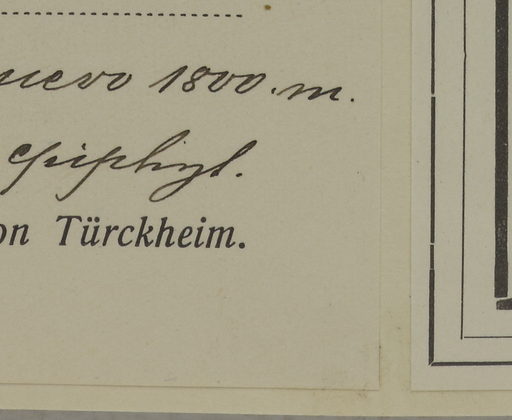 uevo 1800. m.
epiphyl.
on Türckheim.